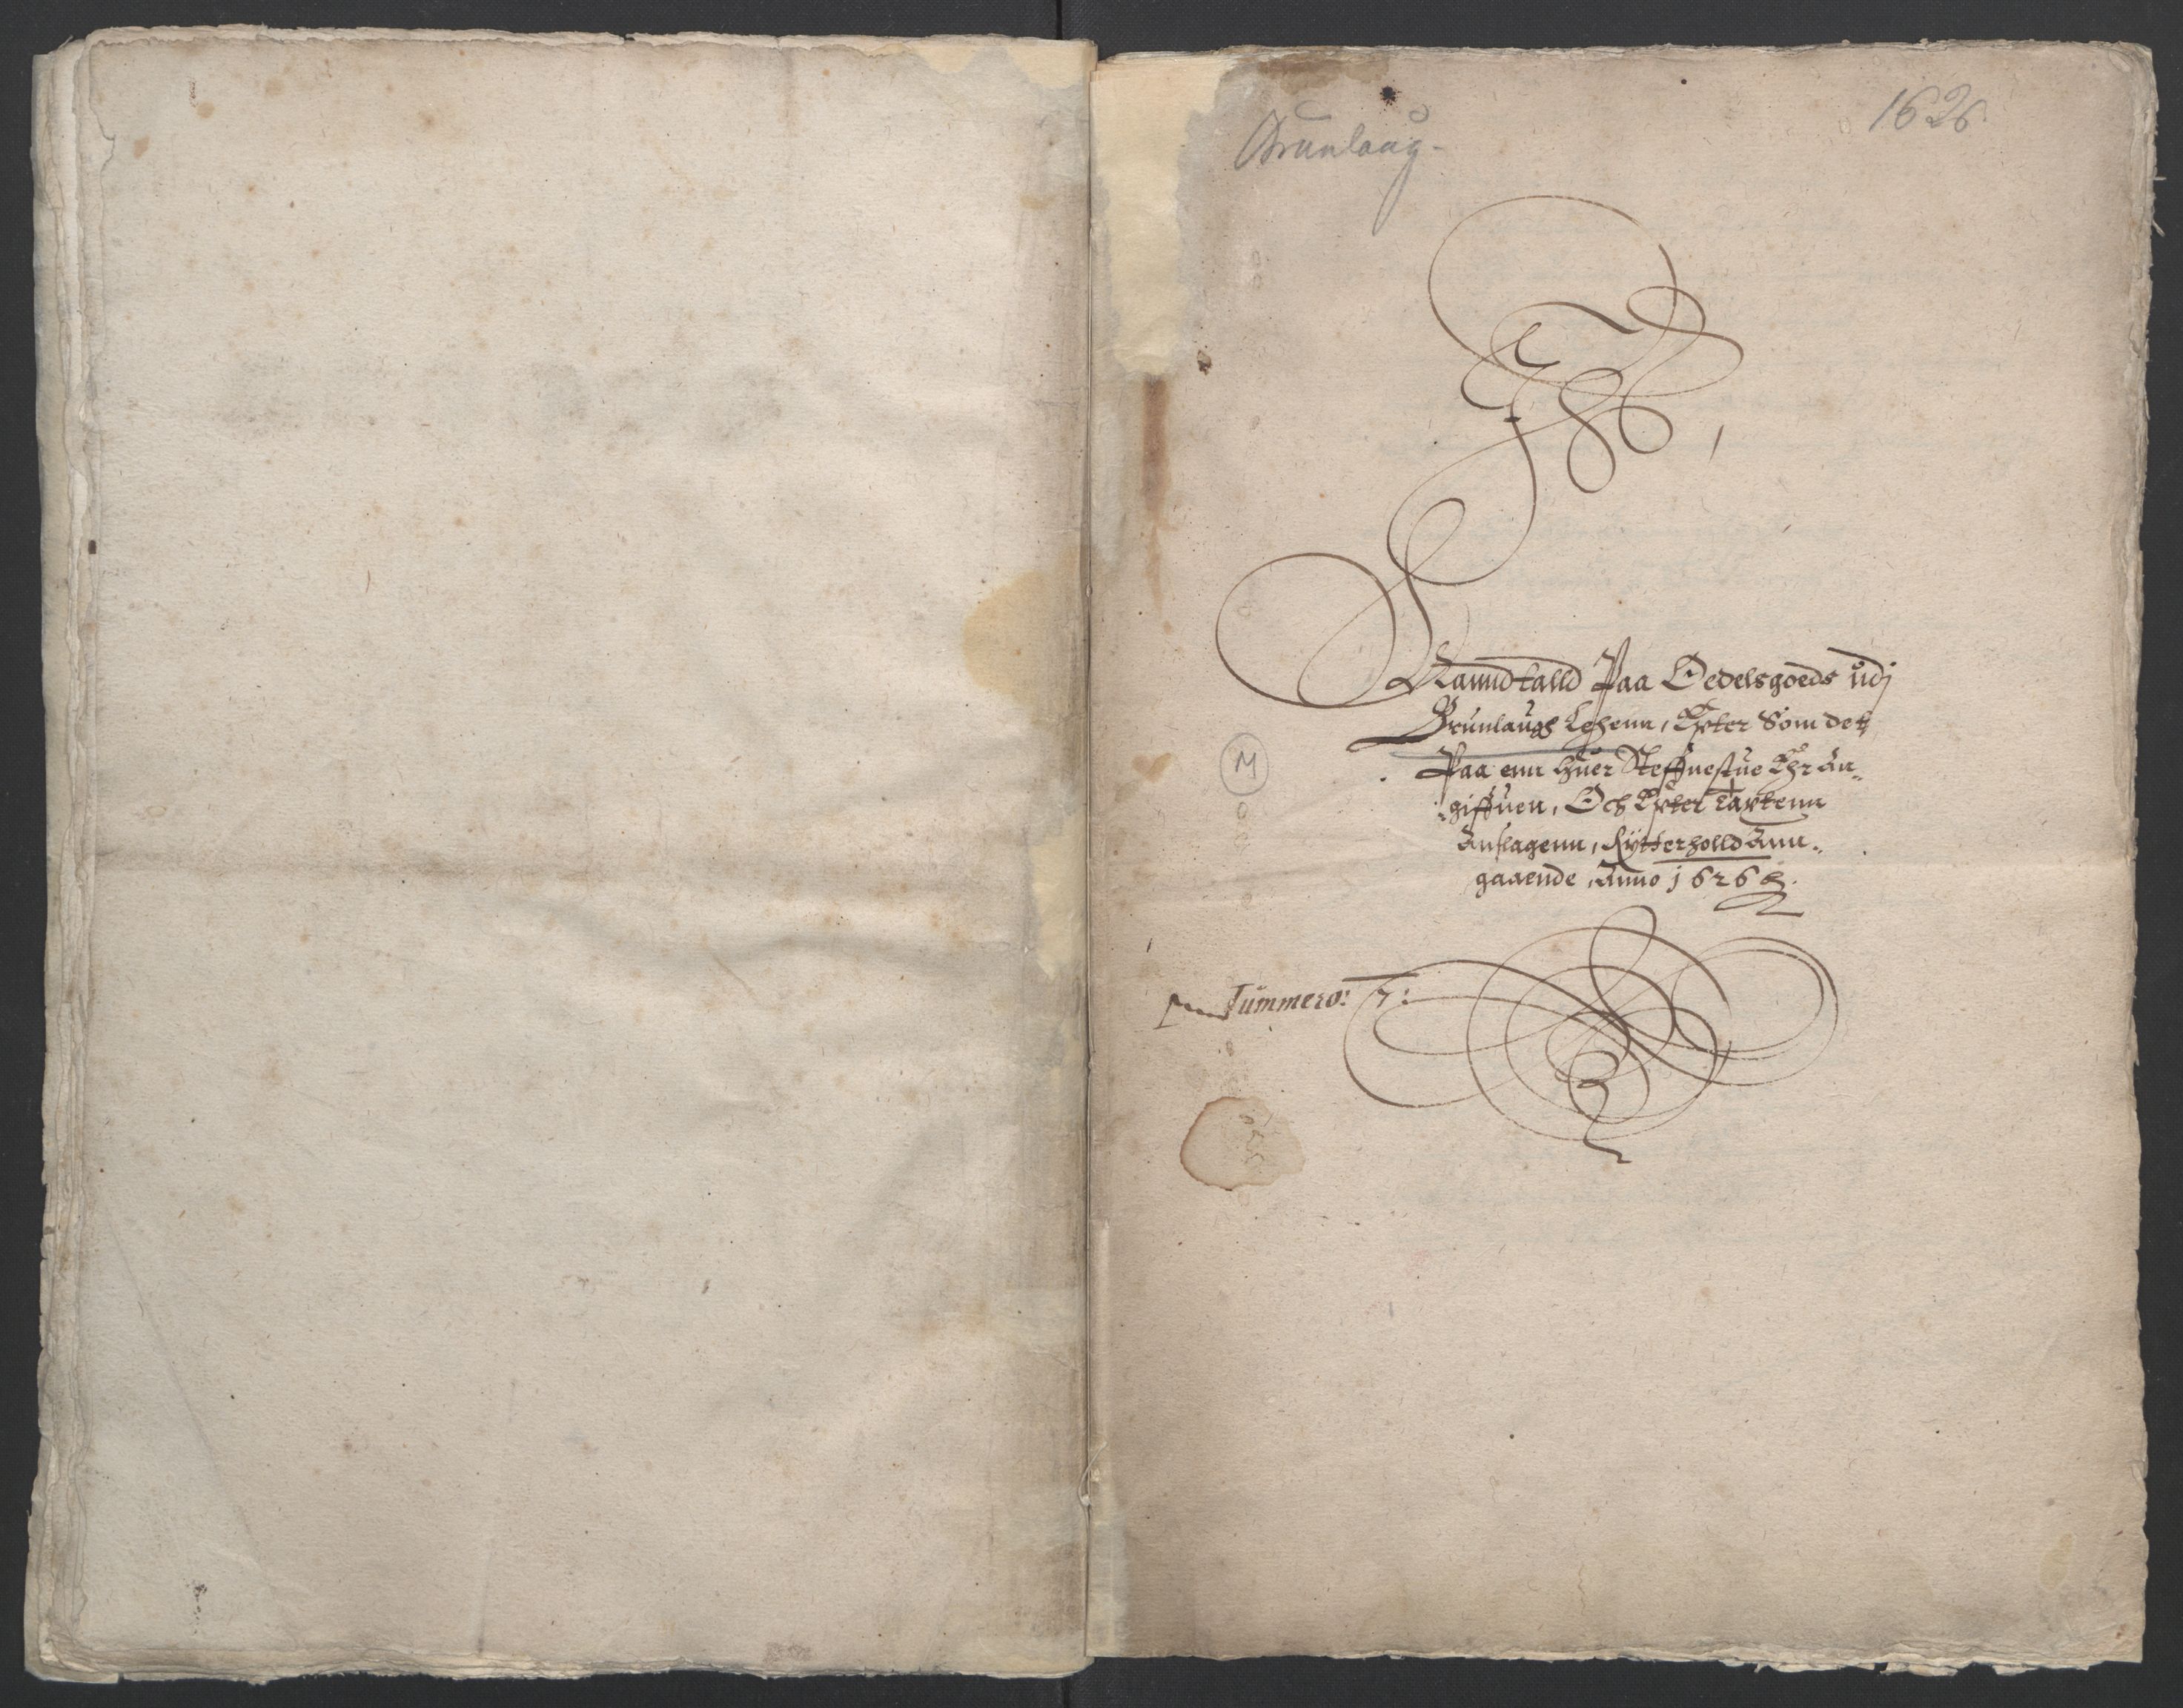 Brunlaug-
1626
Manndtalld Paa Oedelsgoeds udj
Brunlaugs Lehenn, Efter Som det
M
Paa enn huer Steffnestue Ehr An-
giffuen, Och Efter taxtenn
Anslagenn, Rytterholld Ann-
gaaende, Anno 1626
Nummero: 7: